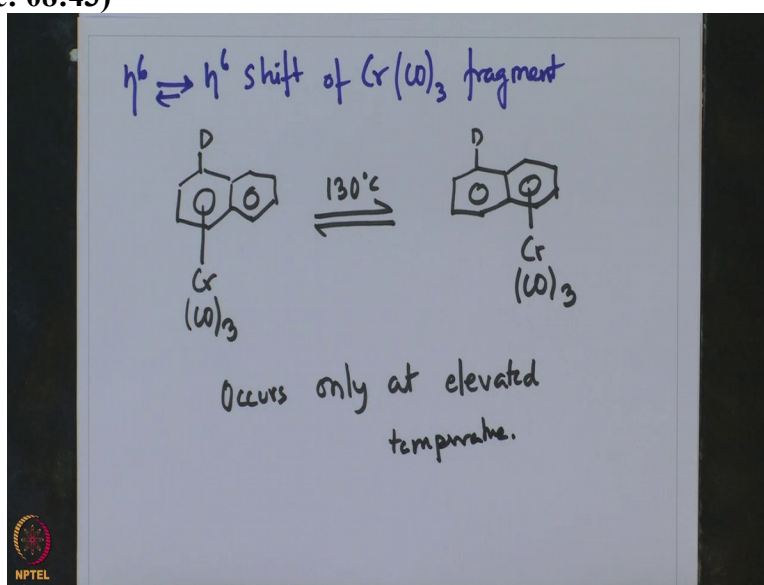 η⁶ ⇌ η⁶ shift of Cr(CO)₃ fragment
D
D
130°C
Cr
(CO)₃
Cr
(CO)₃
Occurs only at elevated
temperature.
NPTEL